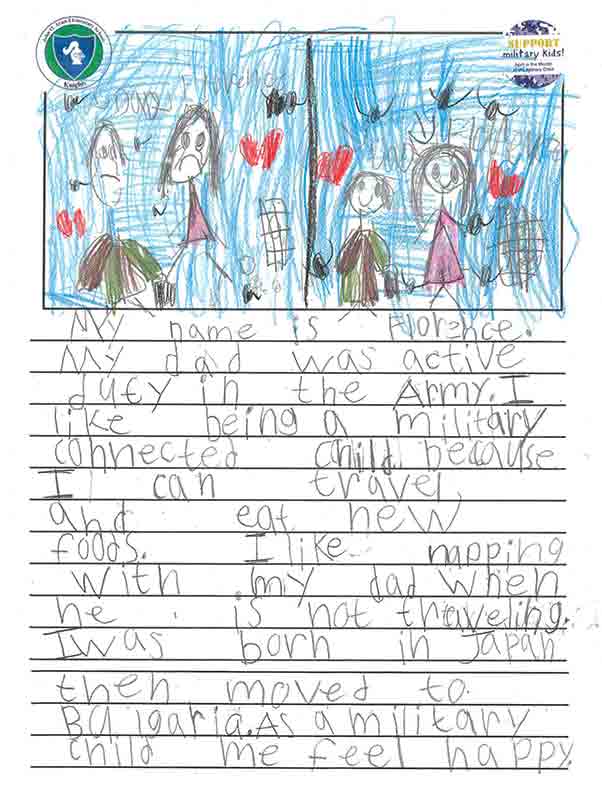 Knights
SUPPORT
military Kids!
April is the Month
My name is Florence.
My dad was active
duty in the Army. I
like being a military
connected child because
I can travel
and eat new
foods. I like napping
with my dad when
he is not traveling.
I was born in Japan
then moved to
Bulgaria. As a military
child me feel happy.